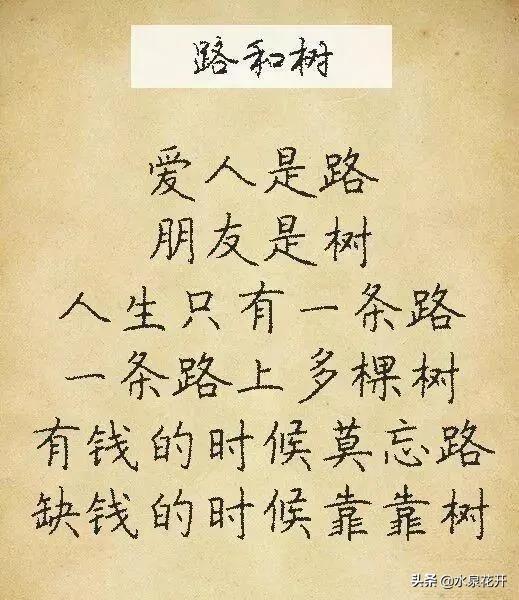 路和树
爱人是路
朋友是树
人生只有一条路
一条路上多棵树
有钱的时候莫忘路
缺钱的时候靠靠树
头条 @水泉花开